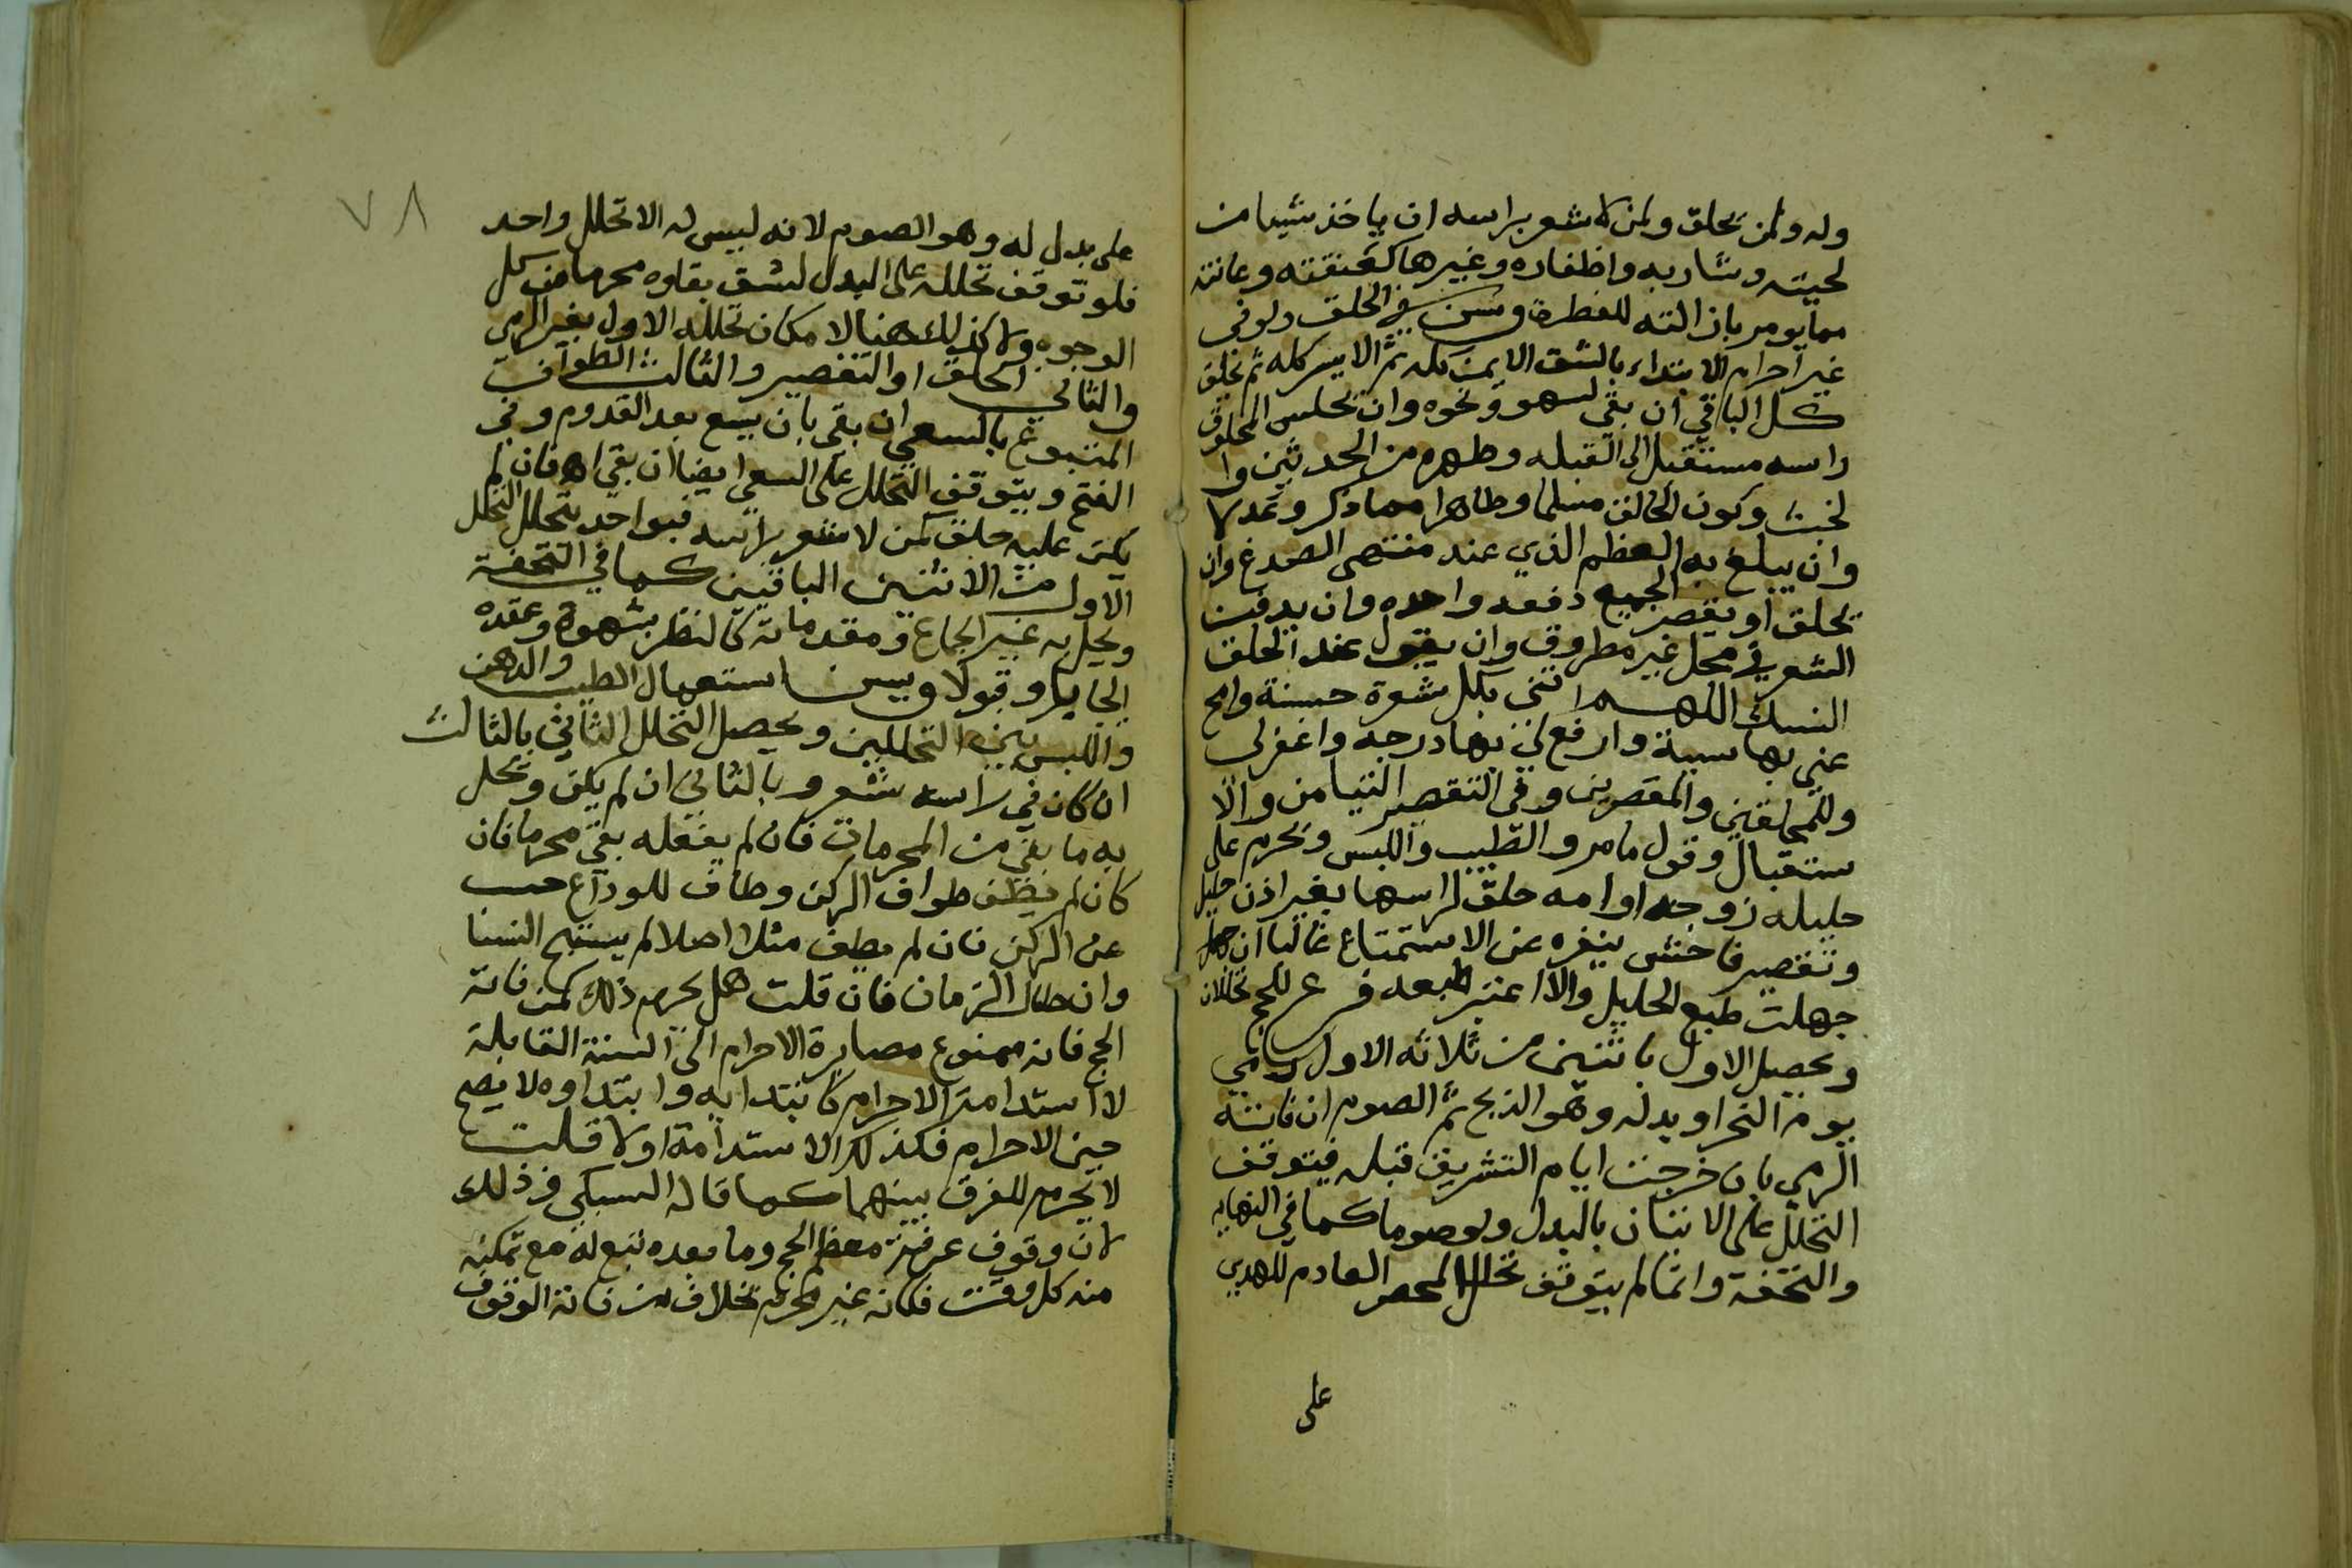 وله ولمن يحلق ولمن لا شعر براسه ان ياخذ شيا من
لحيته وشاربه واظفاره وغيرها كعنفقته وعانته
مما يومر بازالته للفطرة وسن في الحلق ولو في
غير احرام الابتداء بالشق الايمن كله ثم الايسر كله ثم يحلق
كل الباقي ان بقي لسهو ونحوه وان يجلس المحلوق
راسه مستقبل القبله وطهره من الحدثين وا
لخبث وكون الحالق مسلما وطاهرا مما ذكر وعدلا
وان يبلغ به العظم الذي عند منتهى الصدغ وان
يحلق او يقصر الجميع دفعه واحده وان يدفن
الشعر في محل غير مطروق وان يقول عند الحلق
النسك اللهم اتني بكل شعرة حسنة وامح
عني بها سيية وارفع لي بها درجه واغفر لي
وللمحلقين والمقصرين وفي التقصير التيامن والا
ستقبال وقول ما مر والطيب واللبس ويحرم على
حليله زوجه او امه حلق لراسها بغير اذن حليل
وتقصير فاحش ينفره عن الاستمتاع غالبا ان
جهلت طبع الحليل والا اعتبر طبعه فرع للحج تحللان
ويحصل الاول باثنين من ثلاثه الاول رمي
يوم النحر او بدله وهو الذبح ثم الصوم ان فاته
الرمي بان خرجت ايام التشريق قبله فيتوقف
التحلل على الاتيان بالبدل ولو صوما كما في النهايه
والتحفة وانما لم يتوقف تحلل المحصر العادم للهدي
على
٧٨
على بدل له وهو الصوم لانه ليس له الا تحلل واحد
فلو توقف تحلله على البدل لشق بقاوه محرما من كل
الوجوه ولا كذلك هنا لامكان تحلله الاول بغير الرمي
والثاني الحلق او التقصير والثالث الطواف
المتبوع بالسعي ان بقي بان يسع بعد القدوم وفي
الفتح ويتوقف التحلل على السعي ايضا ان بقي اه فان لم
يكن عليه حلق كمن لا شعر براسه فبواحد يتحلل التحلل
الاول من الاثنين الباقيين كما في التحفة
ويحل به غير الجماع ومقدماته كالنظر بشهوة وعقده
ايجابا وقبولا ويسن استعمال الطيب والدهن
واللبس بين التحللين ويحصل التحلل الثاني بالثالث
ان كان في راسه شعر وبالثاني ان لم يكن ويحل
به ما بقي من المحرمات فان لم يفعله بقي محرما فان
كان لم يطف طواف الركن وطاف للوداع حسب
عن الركن فان لم يطف مثلا اصلا لم يستبح النسا
وان طال الزمان فان قلت هل يحرم ذلك كمن فاته
الحج فانه ممنوع مصابرة الاحرام الى السنة القابلة
لا استدامة الاحرام كابتدايه وابتداوه لا يصح
حين الاحرام فكذلك الاستدامة او لا قلت
لا يحرم للفرق بينهما كما قاله السبكي وذلك
لان وقوف عرفة معظم الحج وما بعده تبع له مع تمكنه
منه كل وقت فكانه غير محرم بخلاف من فاته الوقوف